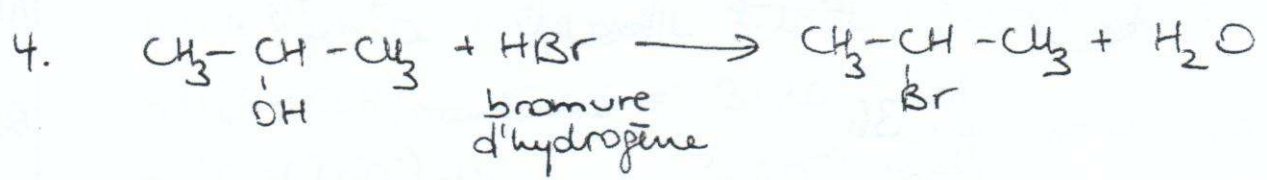 4. CH₃-CH-CH₃ + HBr → CH₃-CH-CH₃ + H₂O
OH bromure Br
d'hydrogène